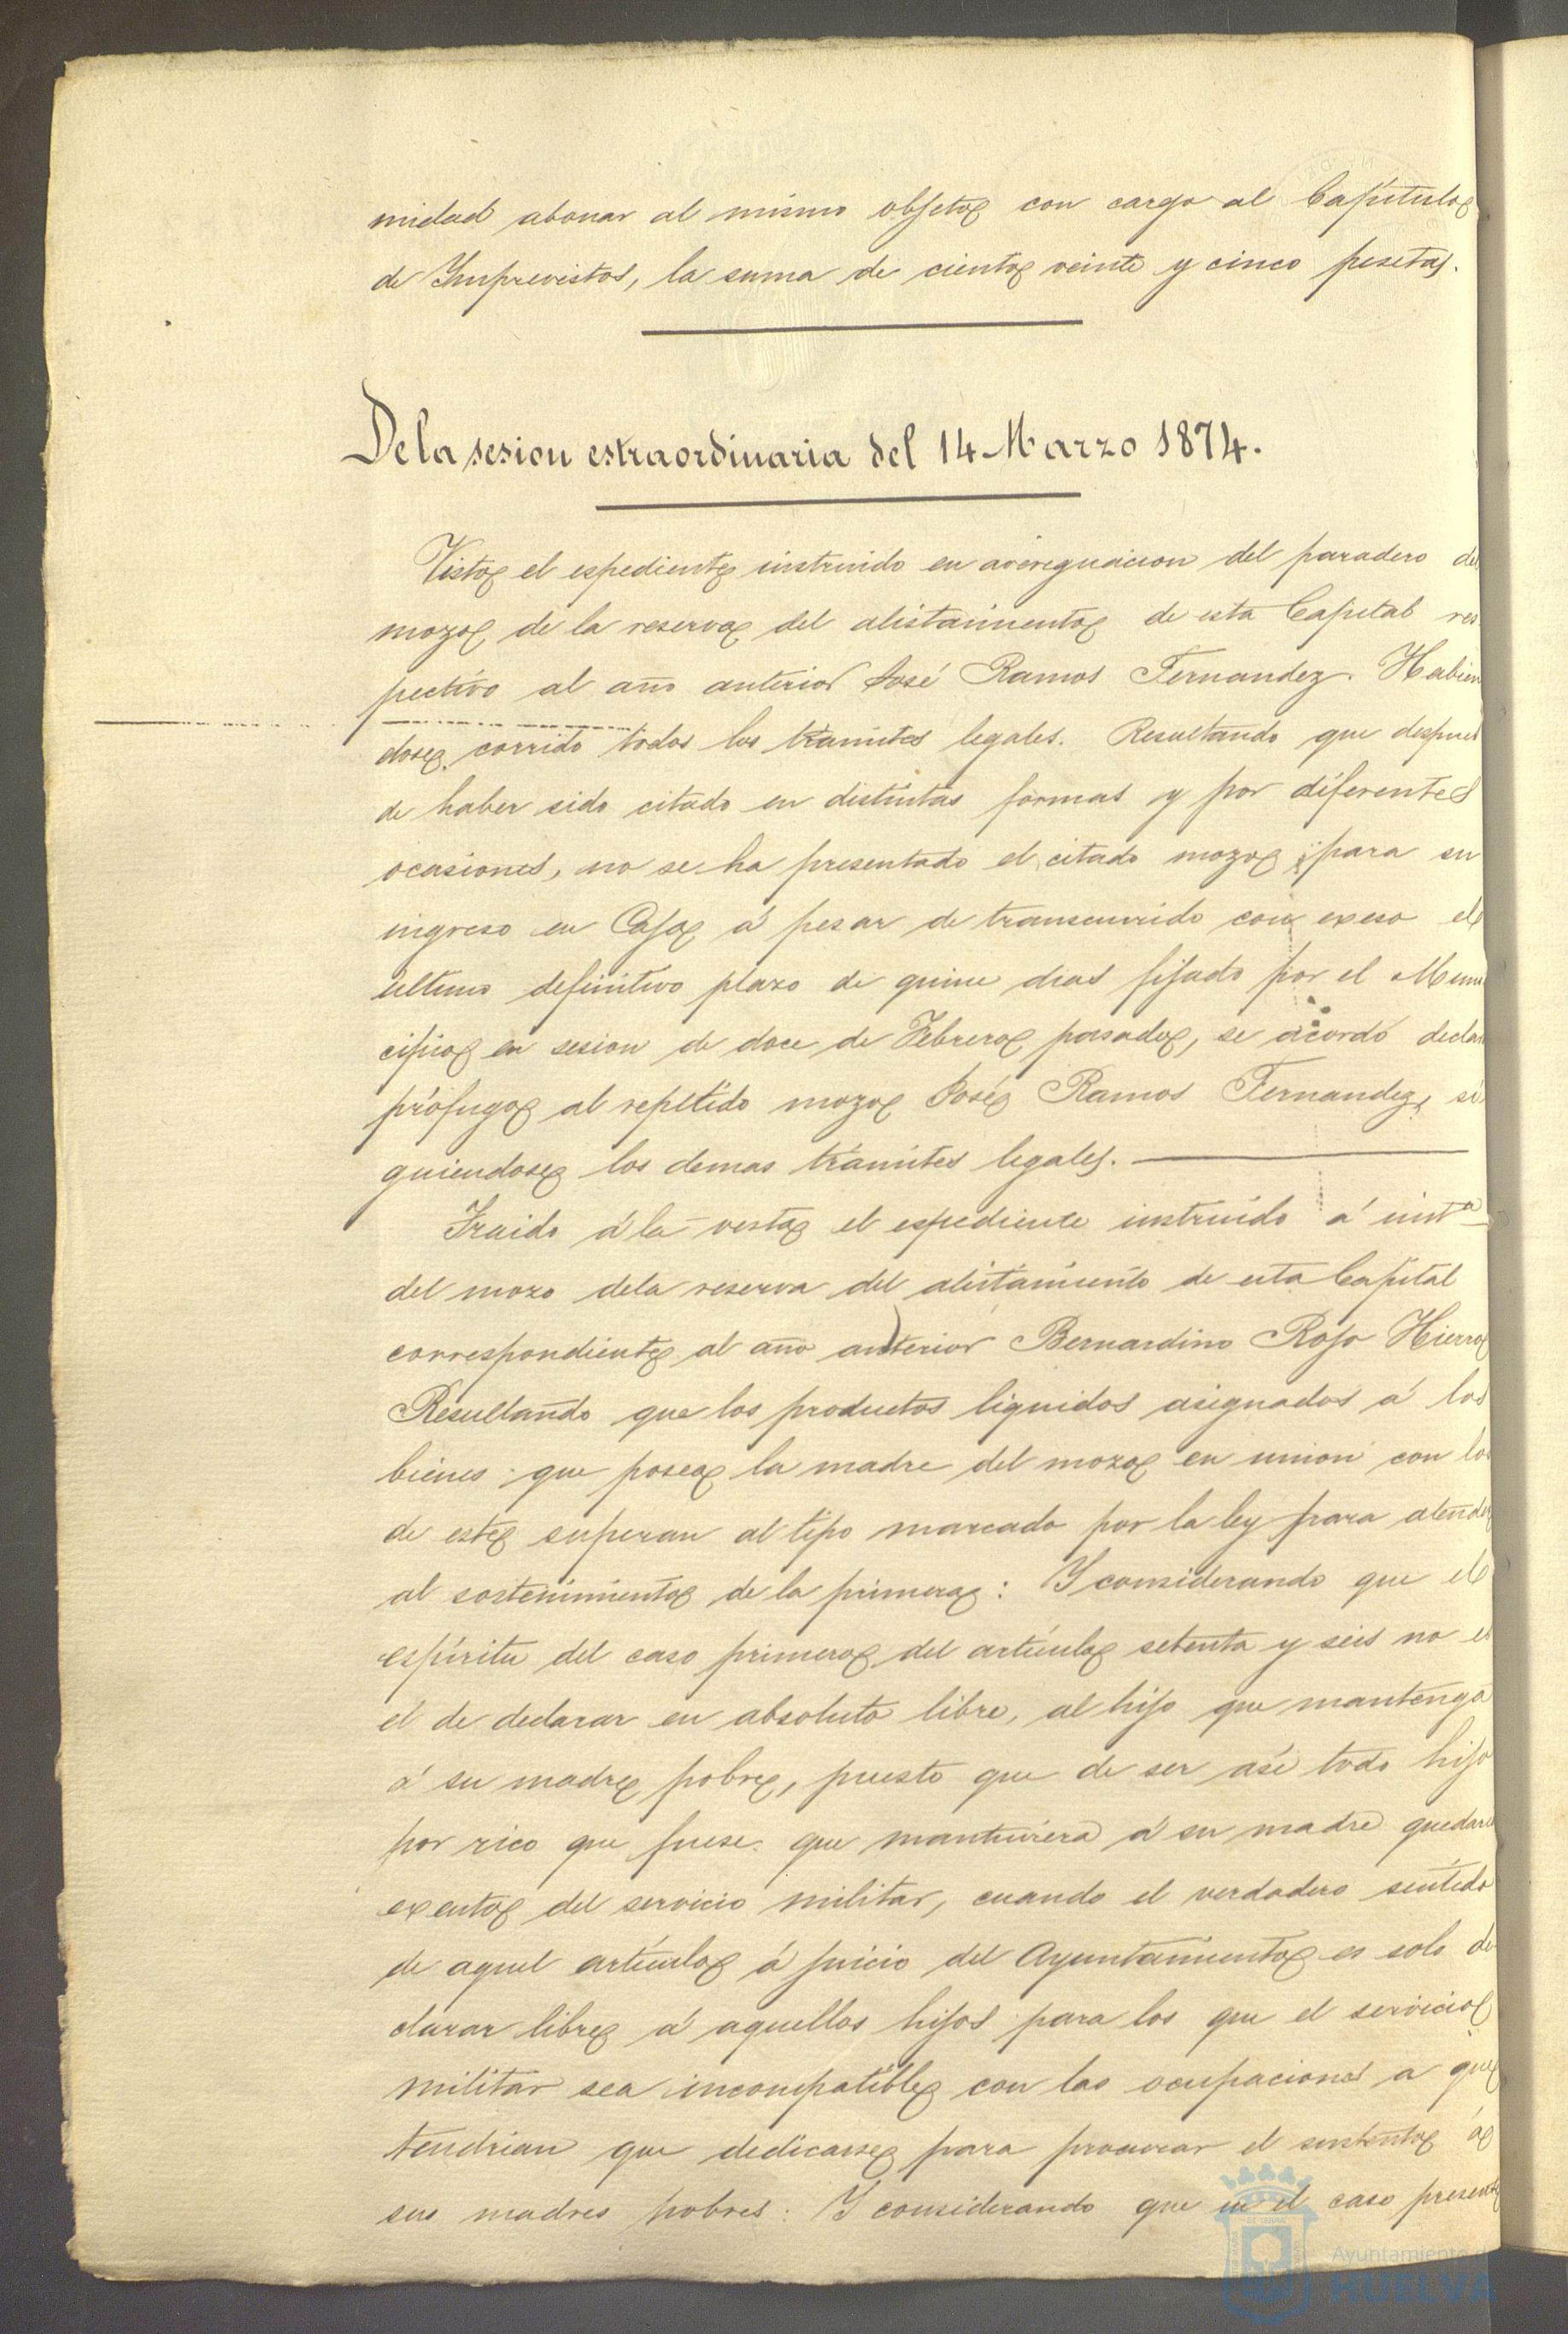 midad abonar al mismo objeto con cargo al Capítulo
de Imprevistos, la suma de ciento veinte y cinco pesetas.
De la sesion estraordinaria del 14 Marzo 1874.
Visto el espediente instruido en avereguacion del paradero del
mozo de la reserva del alistamiento de esta Capital res
pectivo al año anterior José Ramos Fernandez. Habien
dose corrido todos los trámites legales. Resultando que despues
de haber sido citado en distintas formas y por diferentes
ocasiones, no se ha presentado el citado mozo para su
ingreso en Caja á pesar de transcurrido con exeso el
ultimo definitivo plazo de quince dias fijado por el Muni
cipio en sesion de doce de Febrero pasado, se acordó declar
prófugo al repetido mozo José Ramos Fernandez, si
guiendose los demas trámites legales.
Traido á la vista el espediente instruido á insta
del mozo dela reserva del alistamiento de esta Capital
correspondiente al año anterior Bernardino Rojo Hierro
Resultando que los productos liquidos asignados á los
bienes que posea la madre del mozo en union con los
de este superan al tipo marcado por la ley para atender
al sostenimiento de la primera: Y considerando que el
espíritu del caso primero del artículo setenta y seis no es
el de declarar en absoluto libre, al hijo que mantenga
á su madre pobre, puesto que de ser asi todo hijo
por rico que fuese que mantuviera á su madre quedaria
exento del servicio militar, cuando el verdadero sentido
de aquel artículo á juicio del Ayuntamiento es solo de
clarar libre á aquellos hijos para los que el servicio
militar sea incompatible con las ocupaciones a que
tendrian que dedicarse para procurar el sustento á
sus madres pobres: Y considerando que en el caso presente
Ayuntamiento de
HUELVA